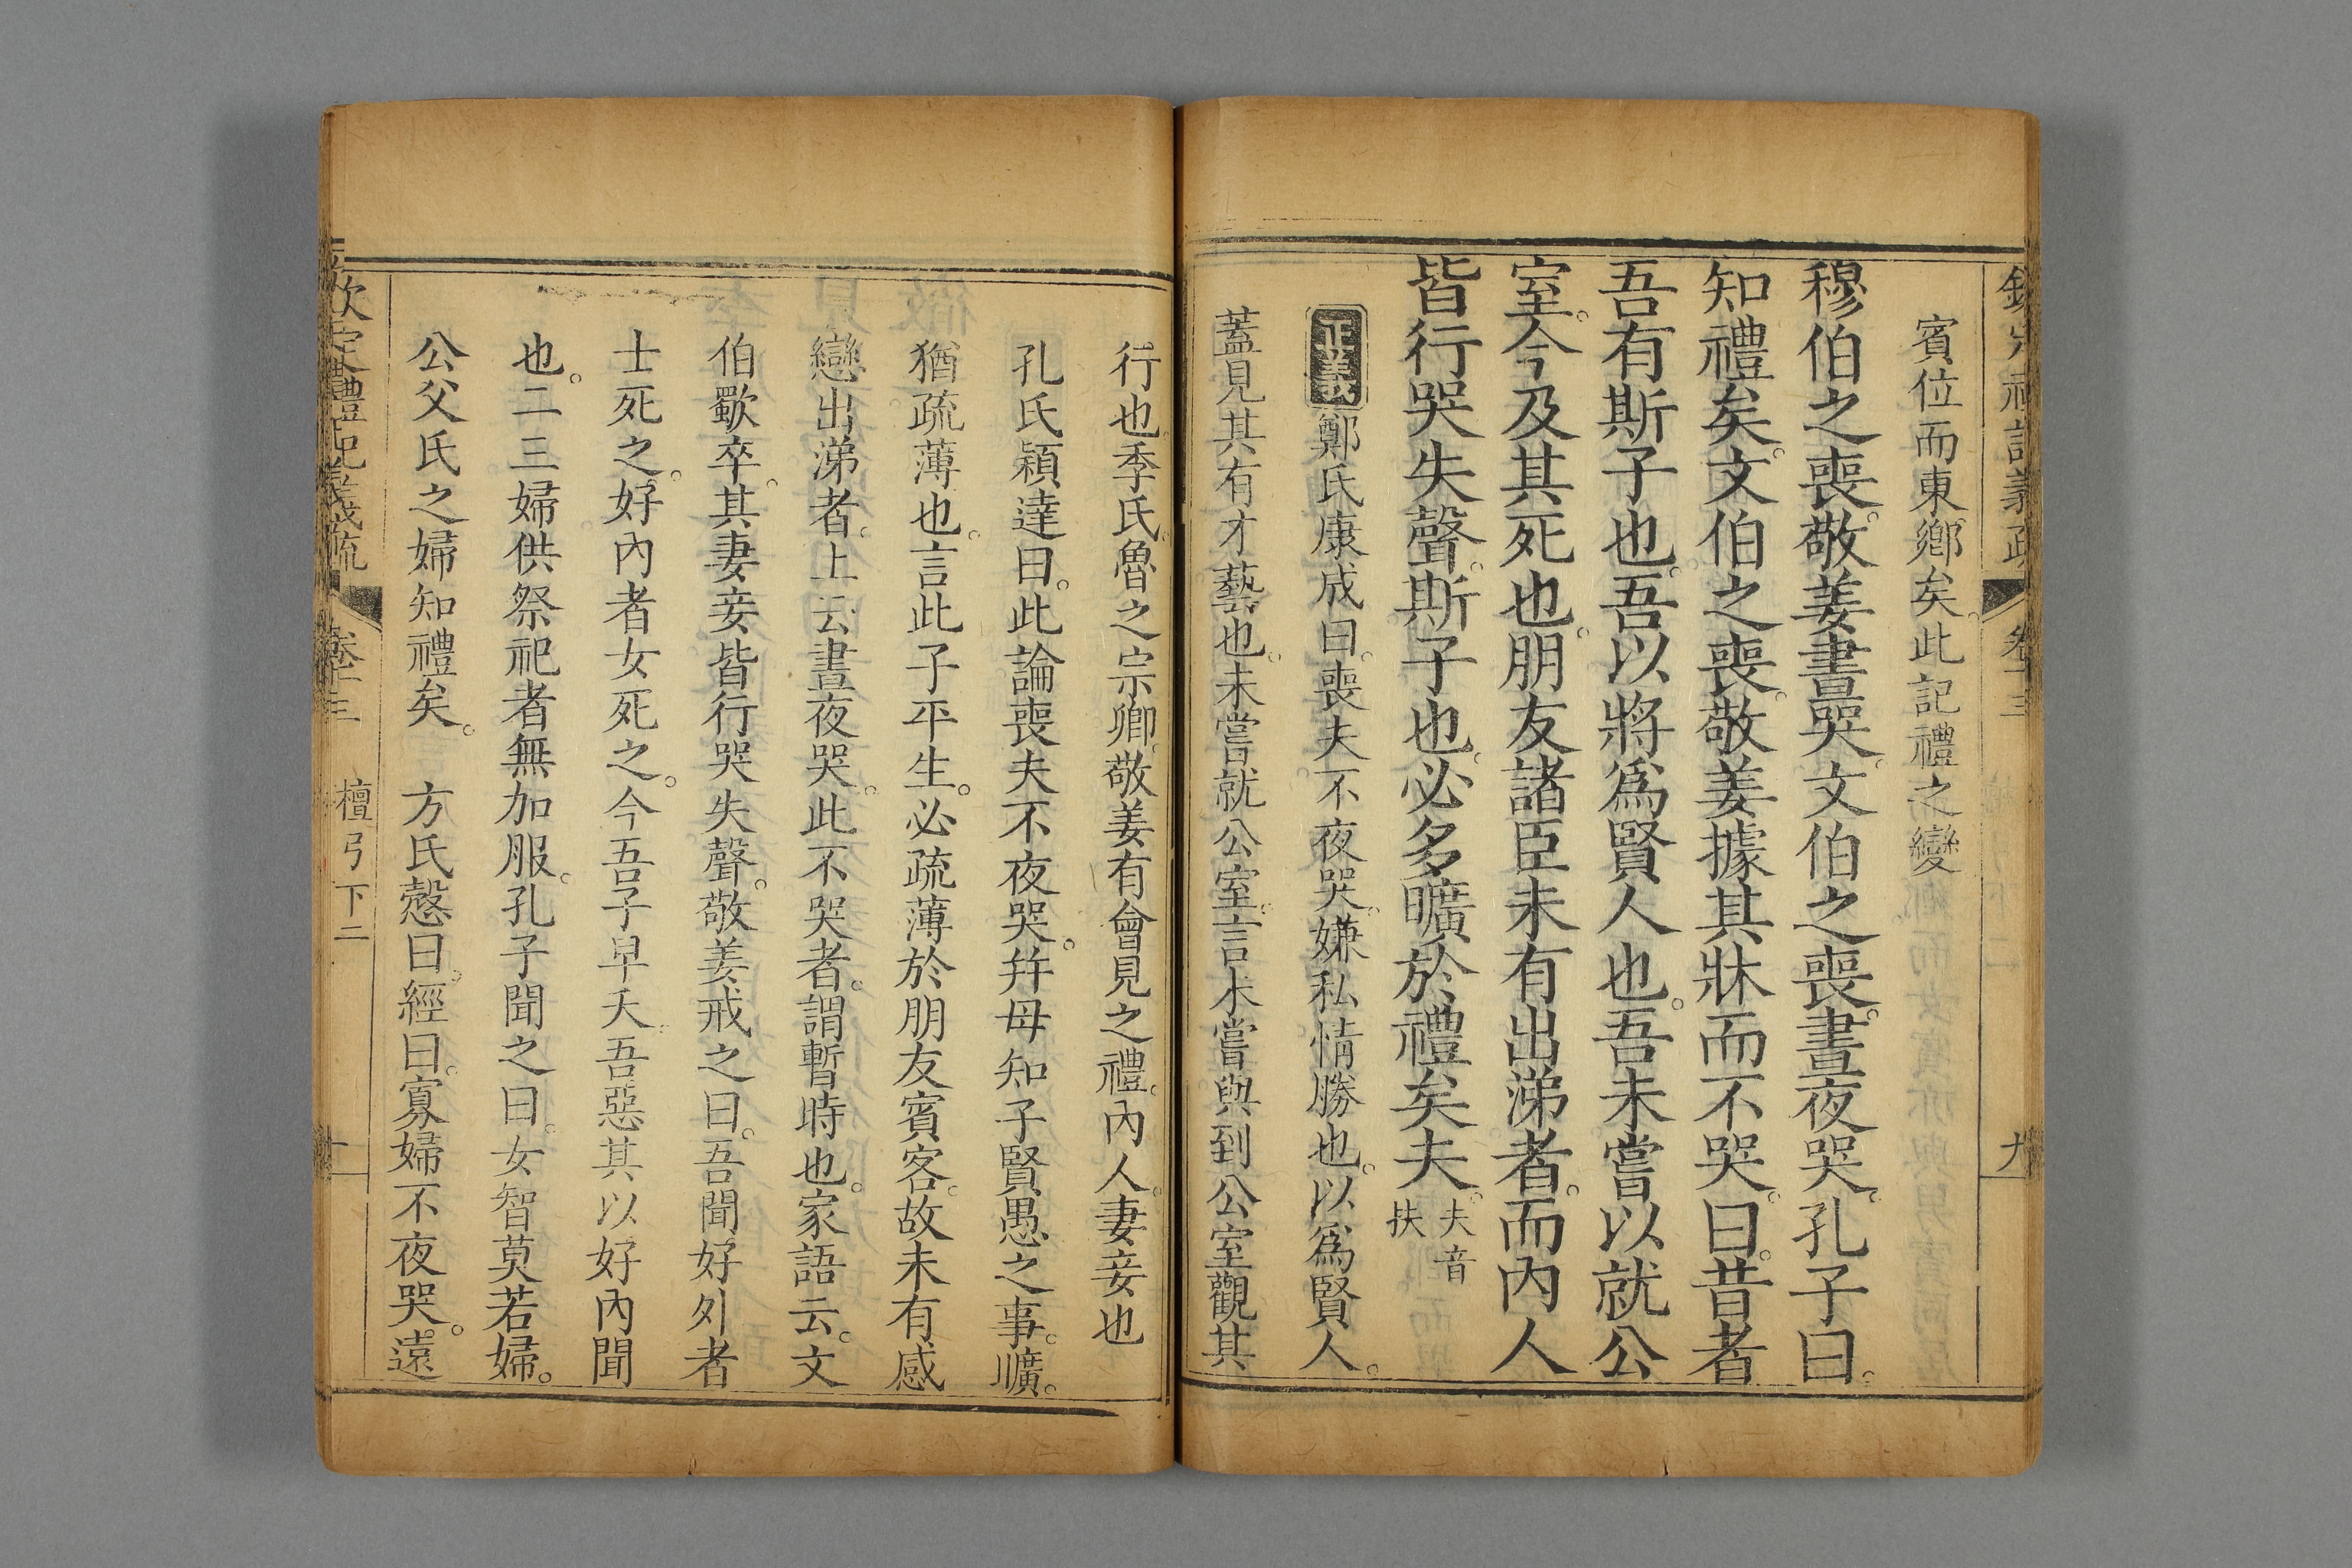 賓位而東鄉矣。此記禮之變
穆伯之喪。敬姜晝哭。文伯之喪。晝夜哭。孔子曰。
知禮矣。文伯之喪。敬姜據其牀而不哭。曰。昔者
吾有斯子也。吾以將爲賢人也。吾未嘗以就公
室。今及其死也。朋友諸臣未有出涕者。而內人
皆行哭失聲。斯子也。必多曠於禮矣夫。夫音扶
正義鄭氏康成曰。喪夫不夜哭。嫌私情勝也。以爲賢人。
蓋見其有才藝也。未嘗就公室。言未嘗與到公室觀其
行也季氏。魯之宗卿。敬姜有會見之禮。內人。妻妾也
孔氏穎達曰。此論喪夫不夜哭。幷母知子賢愚之事。曠。
猶疏薄也。言此子平生。必疏薄於朋友賓客。故未有感
戀出涕者。上云晝夜哭。此不哭者。謂暫時也。家語云。文
伯歜卒。其妻妾皆行哭失聲。敬姜戒之曰。吾聞好外者
士死之。好內者女死之。今吾子早夭。吾惡其以好內聞
也。二三婦供祭祀者無加服。孔子聞之曰。女智莫若婦。
公父氏之婦知禮矣。 方氏慤曰。經曰。寡婦不夜哭。遠
欽定禮記義疏 卷十三 檀弓下二 十